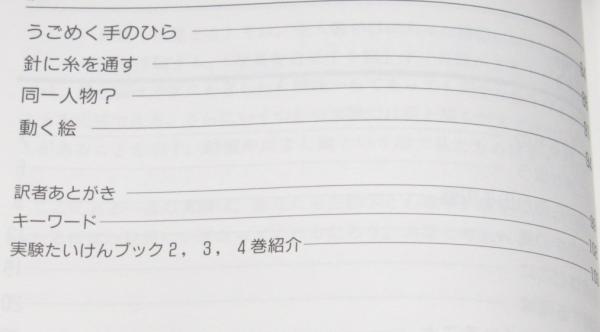 うごめく手のひら
針に糸を通す
同一人物？
動く絵
訳者あとがき
キーワード
実験たいけんブック2，3，4巻紹介